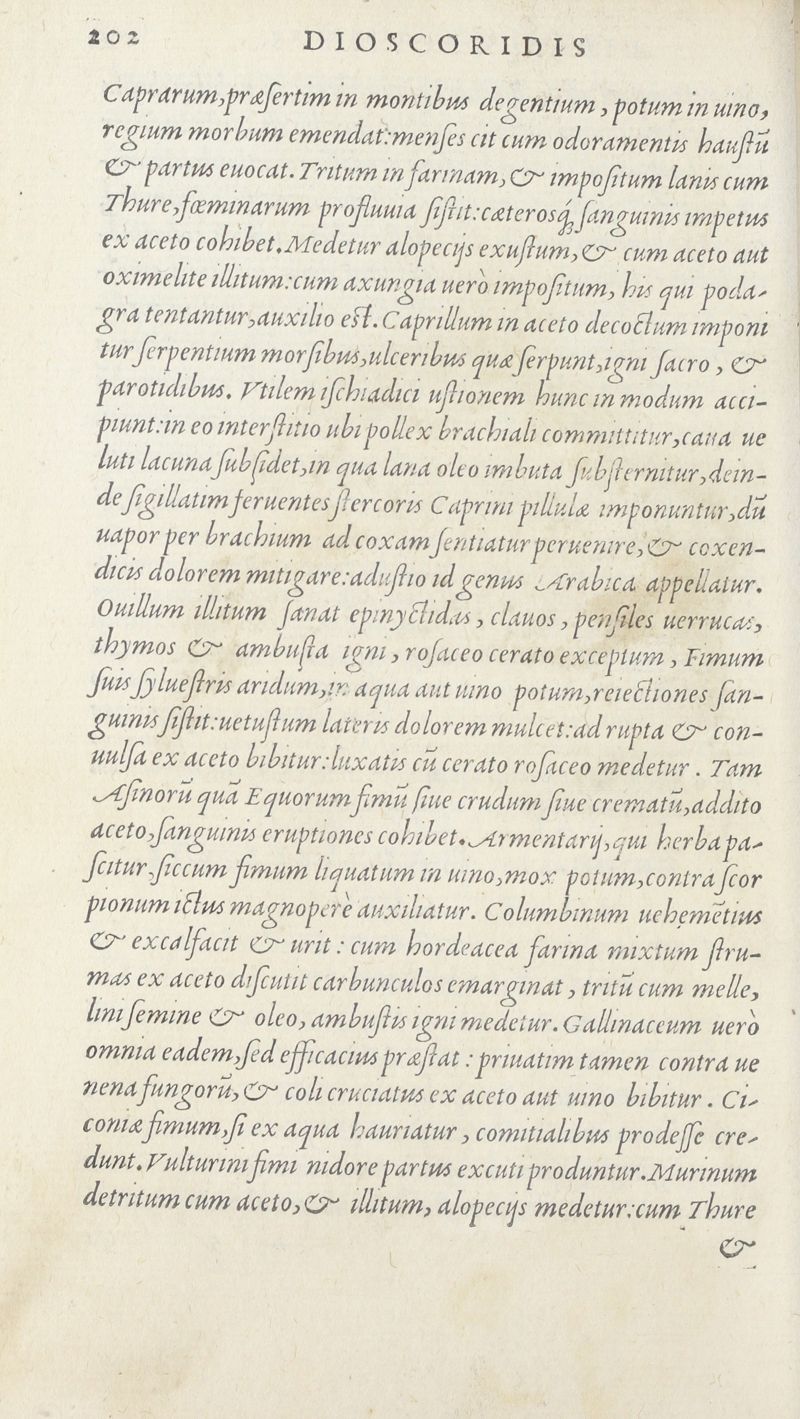 202 DIOSCORIDIS
Caprarum,præſertim in montibus degentium, potum in uino,
regium morbum emendat:menſes cit cum odoramentis hauſtũ
& partus euocat. Tritum in farinam, & impoſitum lanis cum
Thure,fœminarum profluuia ſiſtit:cæterosq́; ſanguinis impetus
ex aceto cohibet. Medetur alopecijs exuſtum, & cum aceto aut
oximelite illitum:cum axungia uerò impoſitum, his qui poda-
gra tentantur,auxilio eſt. Caprillum in aceto decoctum imponi
tur ſerpentium morſibus,ulceribus quæ ſerpunt,igni ſacro, &
parotidibus. Vtilem iſchiadici uſtionem hunc in modum acci-
piunt:in eo interſtitio ubi pollex brachiali committitur,caua ue
luti lacuna ſubſidet,in qua lana oleo imbuta ſubſternitur,dein-
de ſigillatim feruentes ſtercoris Caprini pillulæ imponuntur,dũ
uapor per brachium ad coxam ſentiatur peruenire, & coxen-
dicis dolorem mitigare:aduſtio id genus Arabica appellatur.
Ouillum illitum ſanat epinyctidas, clauos, penſiles uerrucas,
thymos & ambuſta igni, roſaceo cerato exceptum, Fimum
ſuis ſylueſtris aridum,in aqua aut uino potum,reiectiones ſan-
guinis ſiſtit:uetuſtum lateris dolorem mulcet:ad rupta & con-
uulſa ex aceto bibitur:luxatis cũ cerato roſaceo medetur. Tam
Aſinorũ quã Equorum fimũ ſiue crudum ſiue crematũ,addito
aceto,ſanguinis eruptiones cohibet. Armentarij,qui herba pa-
ſcitur,ſiccum fimum liquatum in uino,mox potum,contra ſcor
pionum ictus magnoperè auxiliatur. Columbinum uehemẽtius
& excalfacit & urit: cum hordeacea farina mixtum ſtru-
mas ex aceto diſcutit carbunculos emarginat, tritũ cum melle,
lini ſemine & oleo, ambuſtis igni medetur. Gallinaceum uerò
omnia eadem,ſed efficacius præſtat: priuatim tamen contra ue
nena fungorũ, & coli cruciatus ex aceto aut uino bibitur. Ci-
coniæ fimum,ſi ex aqua hauriatur, comitialibus prodeſſe cre-
dunt. Vulturini fimi nidore partus excuti produntur. Murinum
detritum cum aceto, & illitum, alopecijs medetur:cum Thure
&